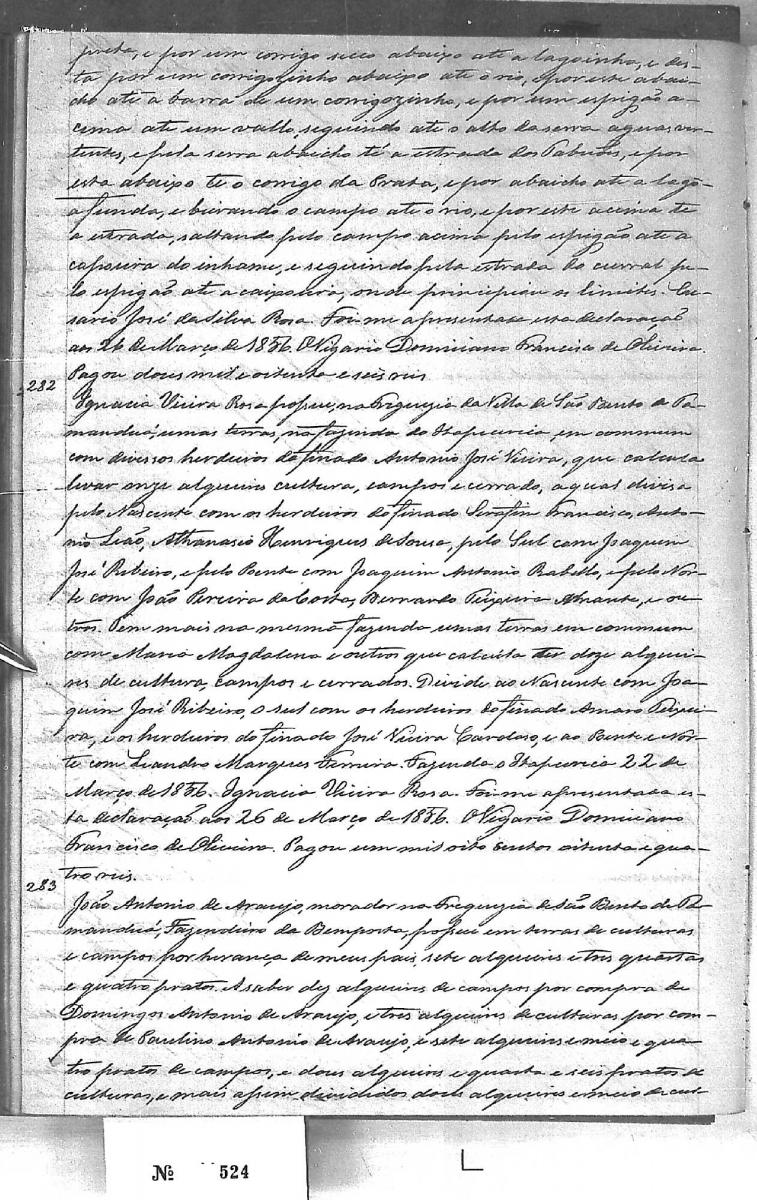 preta, e por um corrigo secco abaixo até a lagoinha, e des-
ta por um corrigozinho abaixo até o rio, e por este abai-
xo até a barra de um corrigozinho, e por um espigão a-
cima até um vallo, seguindo até o alto da serra aguas ver-
tentes, e pela serra abaicho té a estrada dos Pabuões, e por
esta abaixo té o corrigo da Prata, e por abaicho até a lagô-
a funda, e beirando o campo até o rio, e por este acima té
a estrada, saltando pelo campo acima pelo espigão até a
capoeira do inhame, e seguindo pela estrada do curral pe-
lo espigão até a caipoura, onde principiou os limites. Ce-
sario José da Silva Rosa. Foi-me apresentada esta declaração
aos 26 de Março de 1856. O Vigario Domiciano Francisco de Oliveira.
Pagou dous mil e oitenta e seis reis.
282
Ignacia Vieira Rosa possue, na Freguezia da Villa de São Bento do Ta-
manduá, umas terras, na fazenda do Itapecerica, em commum
com diversos herdeiros do finado Antonio José Vieira, que calcula
levar onze alqueires cultura, campos e cerrado, a qual divisa
pelo Nascente com os herdeiros do finado Serafim Francisco, Anto-
nio Leão, Athanasio Henriques de Sousa, pelo Sul com Joaquim
José Ribeiro, e pelo Poente com Joaquim Antonio Rabello, e pelo Nor-
te com João Pereira da Costa, Bernardo Teixeira Amante, e ou-
tros. Tem mais na mesma fazenda umas terras em commum
com Maria Magdalena e outros que calcula ter doze alquei-
res de cultura, campos e cerrados. Divide ao Nascente com Joa-
quim José Ribeiro, o sul com os herdeiros do finado Amaro Teixei-
ra, e os herdeiros do finado José Vieira Cardoso, e ao Poente e Nor-
te com Leandro Marques Ferreira. Fazenda o Itapecerica 22 de
Março de 1856. Ignacia Vieira Rosa. Foi-me apresentada es-
ta declaração aos 26 de Março de 1856. O Vigario Domiciano
Francisco de Oliveira. Pagou um mil oito centos oitenta e qua-
tro reis.
283
João Antonio de Araujo, morador na Freguezia de São Bento do Ta-
manduá, Fazendeiro da Bemposta, possue em terras de culturas
e campos por herança de meus pais, sete alqueires e tres quartas
e quatro pratos. A saber dez alqueires de campos por compra de
Domingos Antonio de Araujo, e tres alqueires de culturas por com-
pra de Paulino Antonio de Araujo, e sete alqueires e meio e qua-
tro pratos de campos, e dous alqueires e quarta e seis pratos de
culturas, e mais assim divididos dous alqueires e meio de cul-
Nº 524